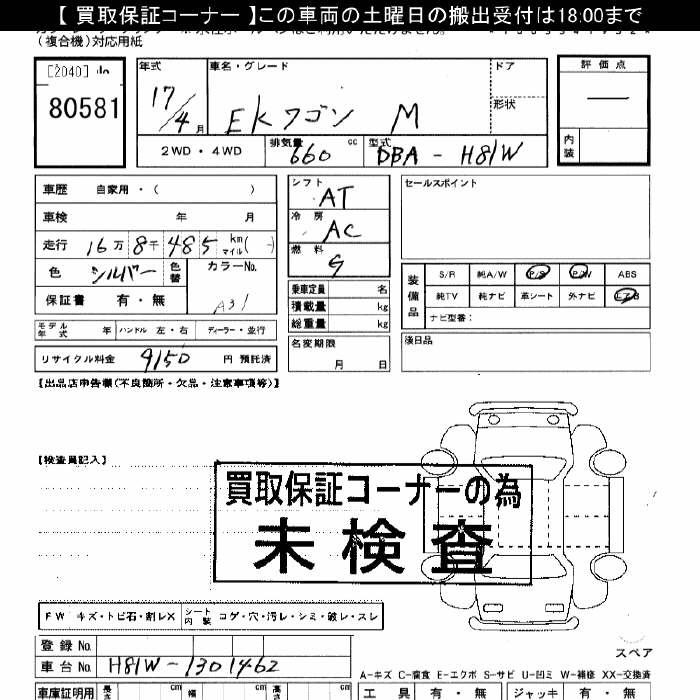 【 買取保証コーナー 】この車両の土曜日の搬出受付は18:00まで
(複合機)対応用紙
[2040]
80581
年式
17/4 月
車名・グレード
EKワゴン M
ドア
形状
評価点
内装
2WD・4WD
排気量 660 cc
型式 DBA - H81W
車歴 自家用・( )
車検 年 月
走行 16万 8千 485 km マイル( )
色 シルバー
色替
カラーNo. A31
保証書 有・無
モデル年式 年
ハンドル 左・右
ディーラー・並行
リサイクル料金 9150 円 預託済
シフト AT
冷房 AC
燃料 G
乗車定員 名
積載量 kg
総重量 kg
名変期限 月 日
セールスポイント
装備品
S/R 純A/W P/S P/W ABS
純TV 純ナビ 革シート 外ナビ エアB
ナビ型番:
後日品
【出品店申告欄(不良箇所・欠品・注意事項等)】
【検査員記入】
買取保証コーナーの為
未検査
FW キズ・トビ石・割レX
シート内装 コゲ・穴・汚レ・シミ・破レ・スレ
登録No.
車台No. H81W-1301462
スペア
A-キズ C-腐食 E-エクボ S-サビ U-凹ミ W-補修 XX-交換済
車庫証明用 長さ cm 幅 cm 高さ cm
工具 有・無 ジャッキ 有・無